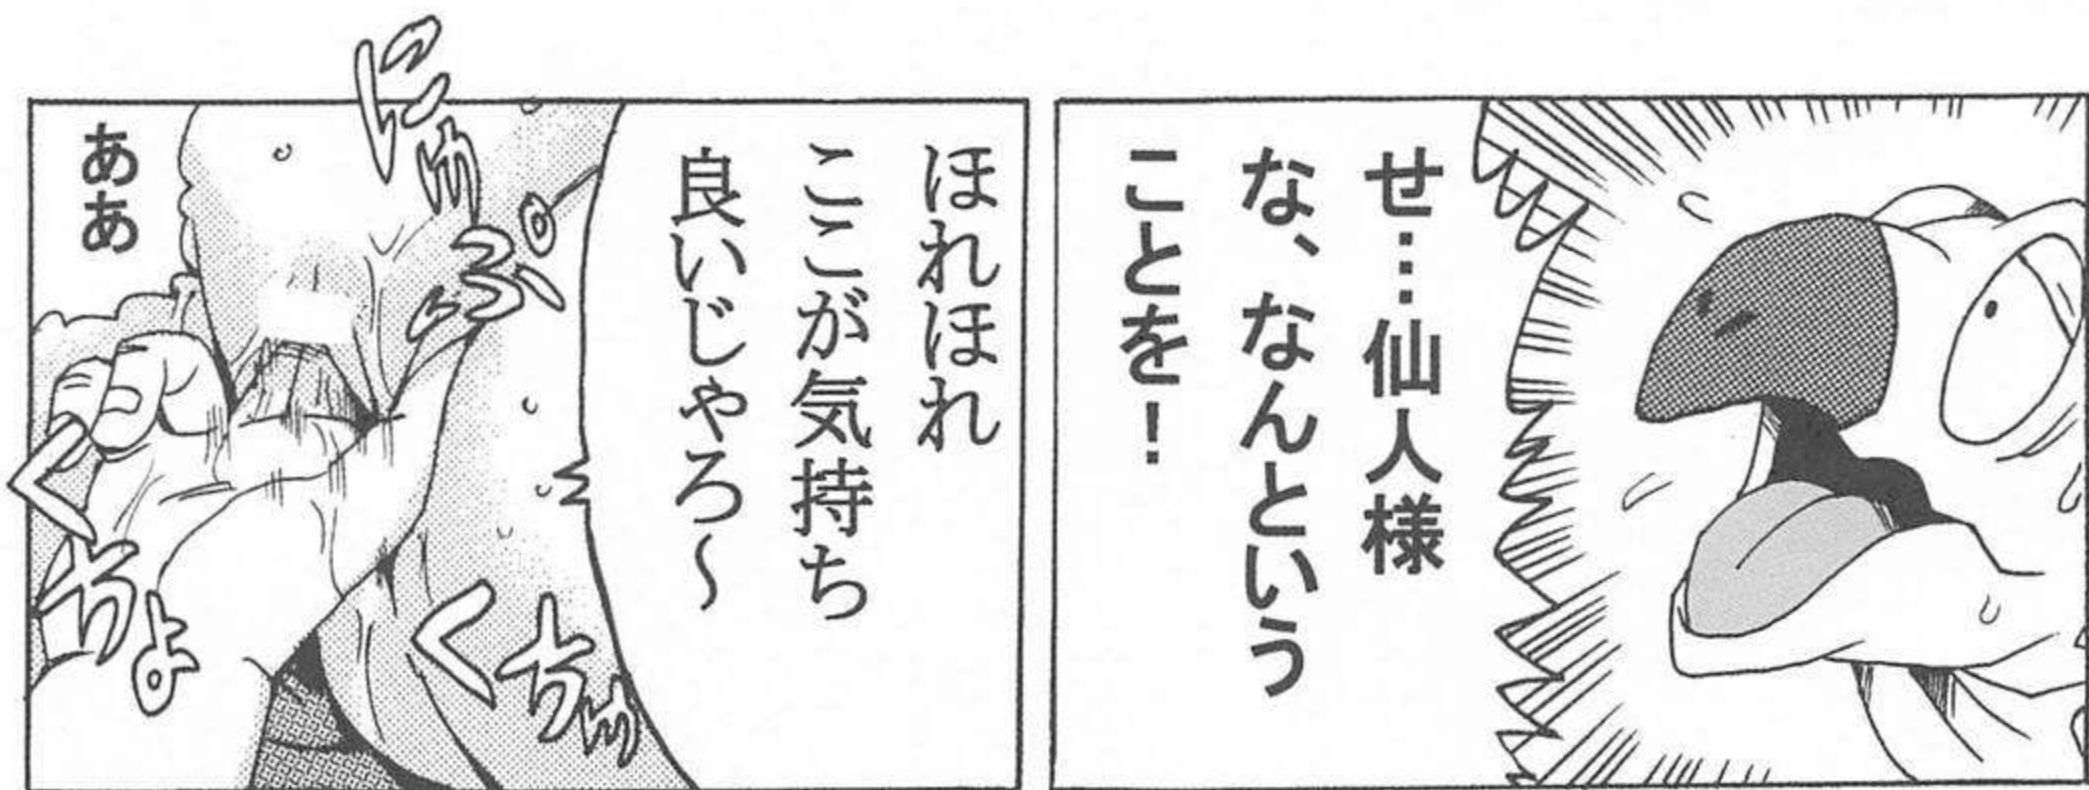 せ…仙人様
な、なんという
ことを！
ほれほれ
ここが気持ち
良いじゃろ～
にゅぷ
くちゅ
ああ
くちょ